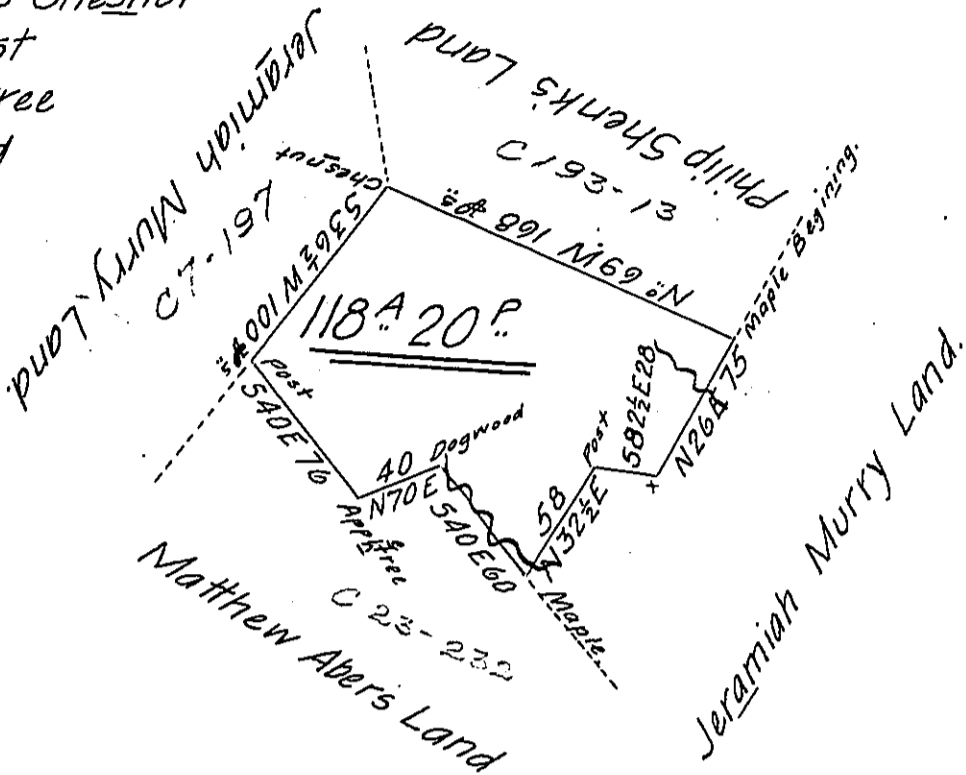 Chesnut
st
ree
d
Jeramiah Murry Land.
C7-157
Philip Shenk's Land
C193-13
Chesnut
N° 69 W 168 Ps
Maple Begining.
S36½W 100 Ps
118 A 20 P
Post
S40E 76
40 Dogwood
N70E
Appletree
S40E60
58
N32½E
Post
S82½E28
N26 75
Maple
C 23-232
Matthew Abers Land
Jeramiah Murry Land.